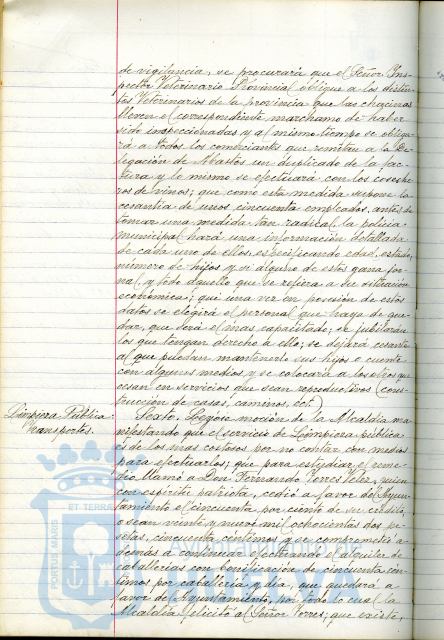 de vigilancia, se procurará que el Señor Ins-
pector Veterinario Provincial oblique a los distin-
tos Veterinarios de la provincia que las chacinas
lleven el correspondiente marchamo de haber
sido inspeccionadas y al mismo tiempo se obliga-
rá a todos los comerciantes que remitan a la De-
legación de Abastos un duplicado de la fac-
tura y lo mismo se efectuará con los coseche-
ros de vinos; que como esta medida supone la
cesantia de unos cincuenta empleados, antes de
tomar una medida tan radical la policia
municipal hará una información detallada
de cada uno de ellos, especificando edad, estado,
número de hijos y si alguno de estos gana jor-
nal y todo aquello que se refiera a su situación
económica; que una vez en posesión de estos
datos se elegirá el personal que haya de que-
dar, que será el mas capacitado; se jubilarán
los que tengan derecho a ello; se dejará cesante
al que puedan mantenerlo sus hijos o cuente
con algunos medios y se colocará a los otros que
cesan en servicios que sean reproductivos (cons-
trucción de casas, caminos, ect.)
Limpieza Pública
Transportes.
Sexto. Leyóse moción de la Alcaldia ma-
nifestando que el servicio de Limpieza pública
es de los mas costosos por no contar con medios
para efectuarlos; que para estudiar el reme-
dio llamó a Don Fernando Torres Velez, quien
con espiritu patriota, cedió a favor del Ayun-
tamiento el cincuenta por ciento de su crédito,
o sean veinte y nueve mil ochocientas dos pe-
setas, cincuenta céntimos y se compromete a-
demás a continuar efectuando el alquiler de
caballerias con bonificación de cincuenta cén-
timos por caballeria y dia, que quedará a
favor de Ayuntamiento, por todo lo cual la
Alcaldia felicitó al Señor Torres; que existe,
PORTUS MARIS
ET TERRA